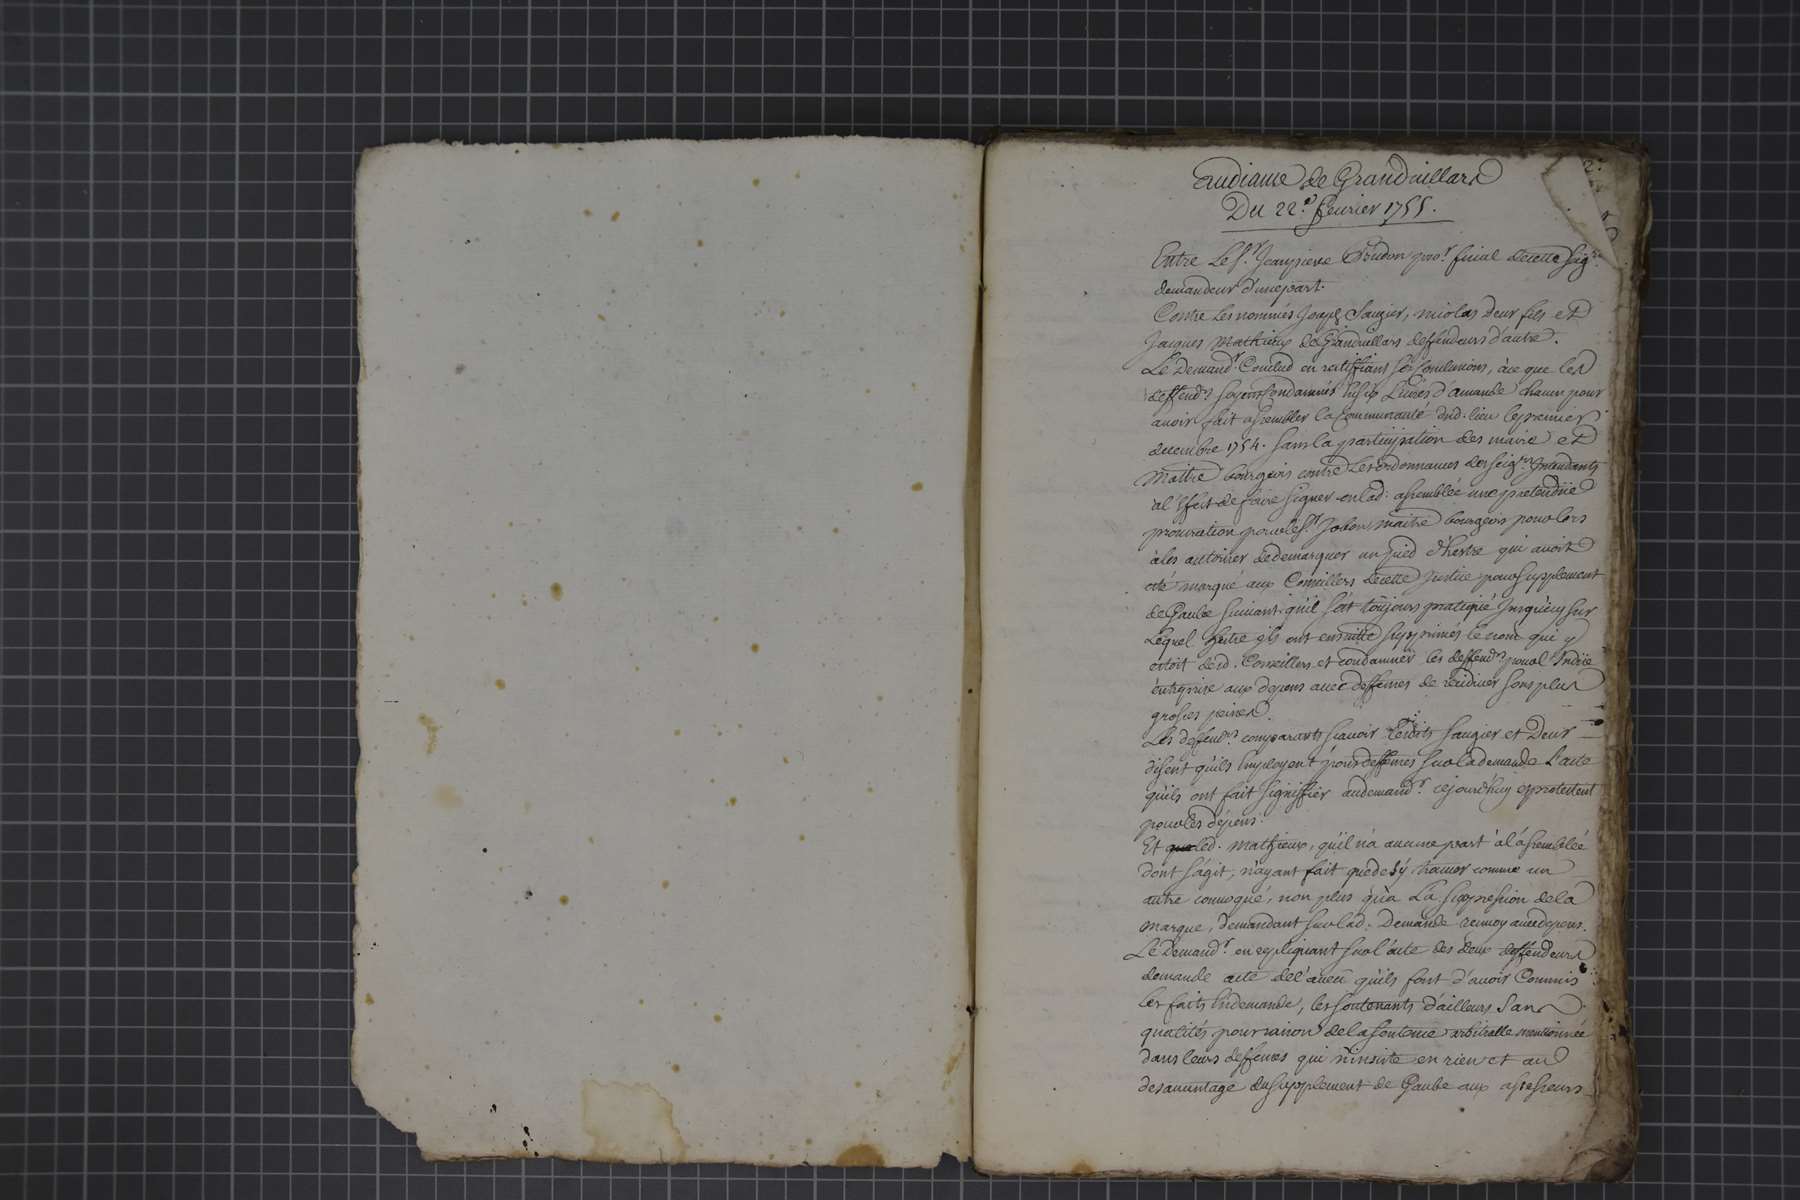 Audiance de Grandvillars
Du 22.e fevrier 1755.
2.
Entre Le Sr. Jeanpierre Prudon pror. fiscal decette Seigrie.
demandeur d'une part.
Contre Les nommés Joseph Saugier, nicolas Deur fils et
Jacques Mathieux de Grandvillars deffendeurs d'autre.
Le Demandr. Conclud en rectiffiant ses Conclusions, à ce que les
deffendrs soyent Condamnés à six Livres d'amande chacun pour
avoir fait assembler la Communauté dud. lieu le premier
decembre 1754. sans la participation des maire et
Maitre bourgeois contre Les ordonnances des seigrs. Intendants
à l'effet de faire signer en lad. assemblée une pretendüe
procuration pour le Sr. Jobin, maitre bourgeois pour lors
à les autoriser de demarquer un pied d'hestre qui avoit
eté marqué aux Conseillers decette Justice pour supplement
de Gaube suivant qu'il s'est toûjours pratiqué Jusqu'icy sur
Lequel hestre ils ont ensuitte supprimés le nom qui y
estoit desd. Conseillers et condamner les deffendrs. pour l'Indüe
entreprise aux depens avec deffenses de recidiver sous plus
grosses peines.
Les deffendrs. comparants scavoir lesdits Saugier et Deur
disent qu'ils Employent pour deffenses sur la demande L'acte
qu'ils ont fait signiffier au demandr. cejourd'huy et protestent
pour les depens.
Et led. Mathieux, qu'il n'a aucune part à l'assemblée
dont s'agit, n'ayant fait que de s'y trouver comme un
autre convoqué, non plus qu'à La supression de la
marque, demandant sur lad. Demande renvoy avec depens.
Le Demandr. en repliquant sur l'acte des deux deffendeurs
demande acte de l'aveü qu'ils font d'avoir Commis
les faits en demande, les soutenants d'ailleurs sans
qualités pour raison de la sentence arbitralle mentionnée
dans leurs deffenses qui n'insiste en rien et au
desavantage du supplement de Gaube aux assesseurs